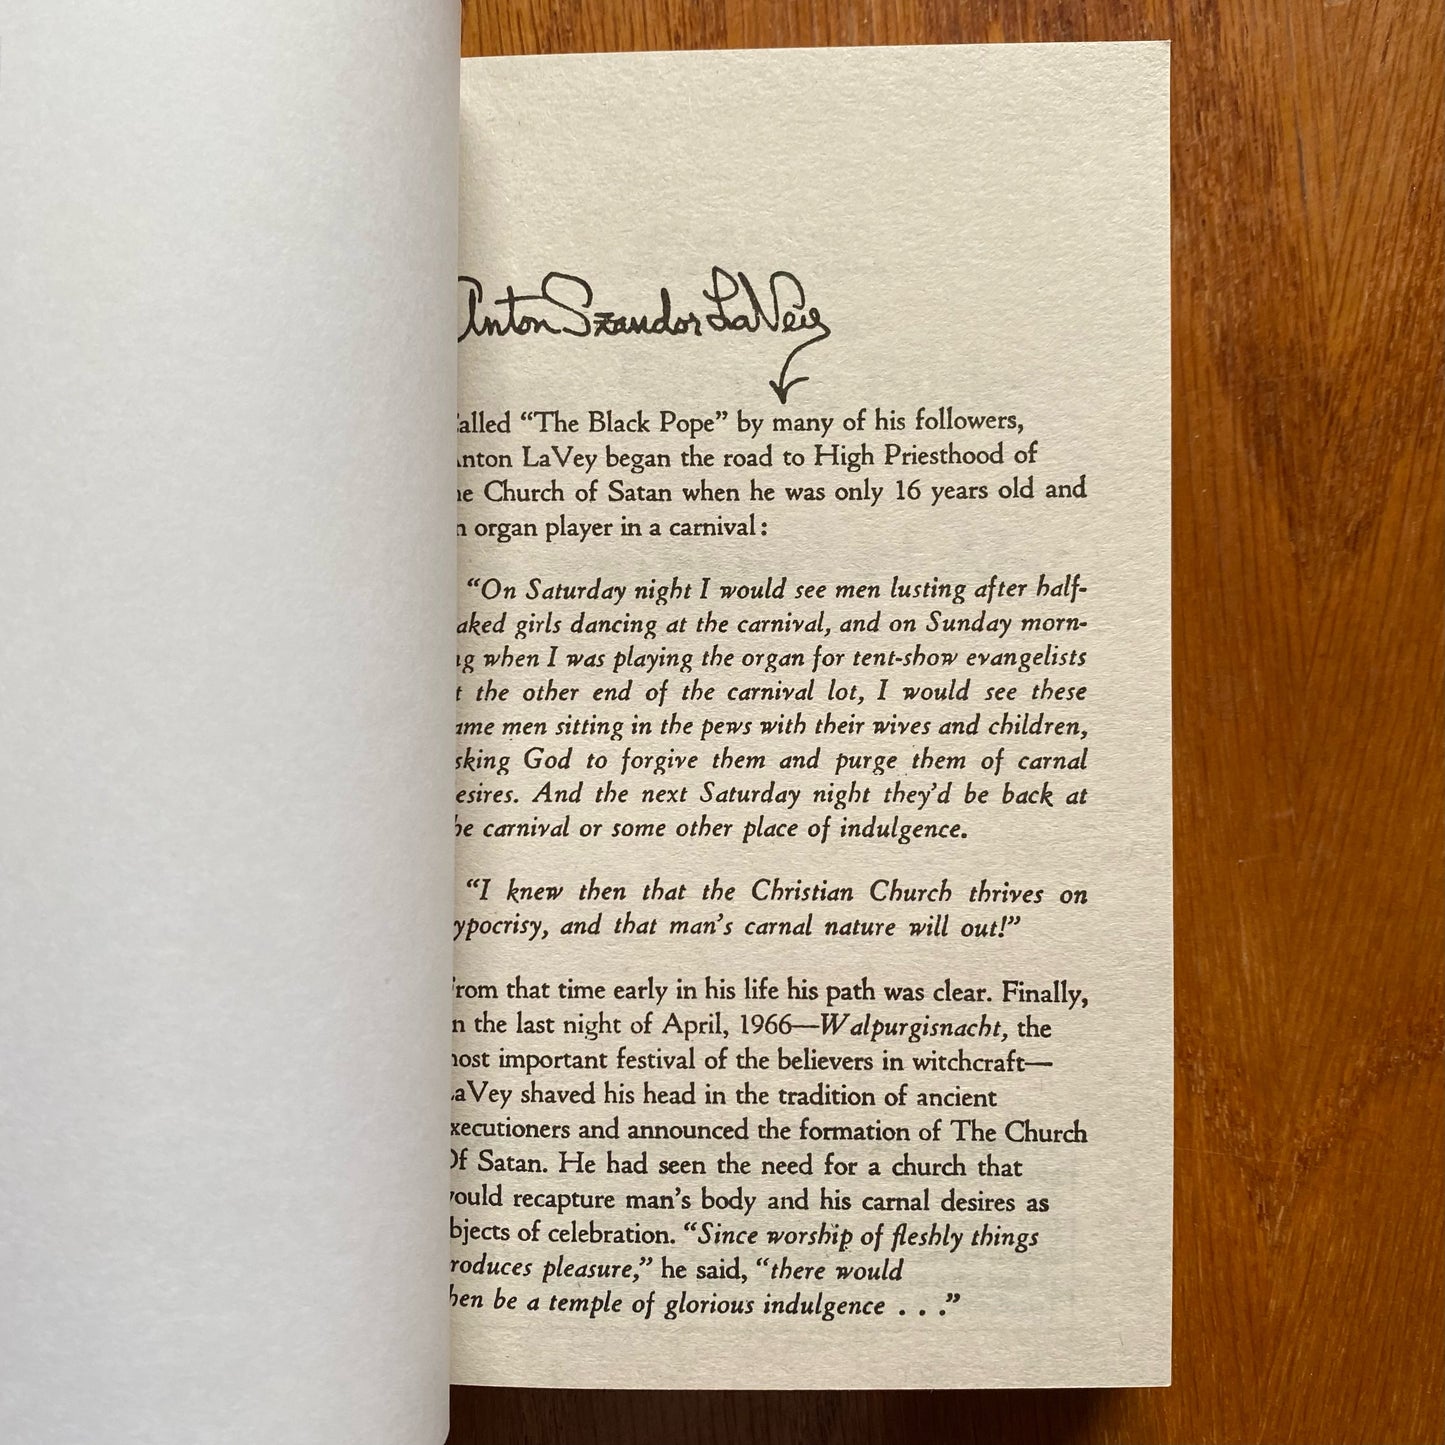 Anton Szandor LaVey
alled “The Black Pope” by many of his followers,
nton LaVey began the road to High Priesthood of
he Church of Satan when he was only 16 years old and
n organ player in a carnival:
“On Saturday night I would see men lusting after half-
aked girls dancing at the carnival, and on Sunday morn-
ng when I was playing the organ for tent-show evangelists
t the other end of the carnival lot, I would see these
ame men sitting in the pews with their wives and children,
sking God to forgive them and purge them of carnal
esires. And the next Saturday night they’d be back at
he carnival or some other place of indulgence.
“I knew then that the Christian Church thrives on
ypocrisy, and that man’s carnal nature will out!”
rom that time early in his life his path was clear. Finally,
n the last night of April, 1966—Walpurgisnacht, the
most important festival of the believers in witchcraft—
LaVey shaved his head in the tradition of ancient
xecutioners and announced the formation of The Church
Of Satan. He had seen the need for a church that
would recapture man’s body and his carnal desires as
bjects of celebration. “Since worship of fleshly things
roduces pleasure,” he said, “there would
hen be a temple of glorious indulgence . . .”